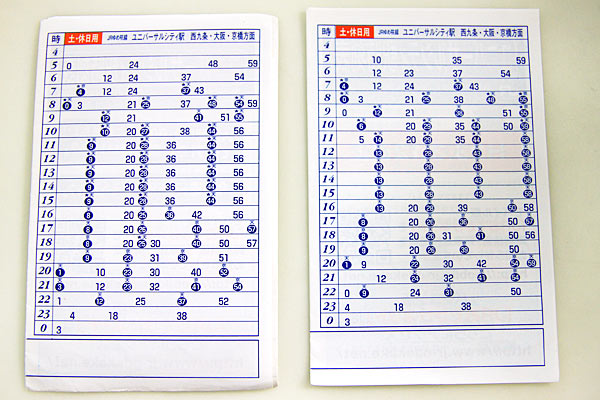 時 土・休日用 JRゆめ咲線 ユニバーサルシティ駅 西九条・大阪・京橋方面
4
5 0 24 48 59
6 12 24 37 54
7 4 12 24 37 43
8 0 3 21 25 37 48 54 59
9 12 21 41 51 55
10 10 20 27 38 44 56
11 9 20 28 36 44 56
12 9 20 28 36 44 56
13 9 20 28 36 44 56
14 9 20 28 36 44 56
15 9 20 28 36 44 56
16 8 20 25 36 42 56
17 8 20 26 40 50 57
18 8 20 25 30 40 50 57
19 9 23 31 39 51
20 1 10 23 30 40 52
21 3 12 23 32 41 54
22 1 12 25 37 52
23 4 18 38
0 3
時 土・休日用 JRゆめ咲線 ユニバーサルシティ駅 西九条・大阪・京橋方面
4
5 10 35 59
6 12 23 37 54
7 4 12 24 37 43
8 0 3 21 25 38 48 55
9 0 12 21 36 51 55
10 6 20 29 35 44 50 59
11 5 14 20 29 35 44 58
12 13 28 43 58
13 13 28 43 58
14 13 28 43 58
15 13 28 43 58
16 13 20 28 39 50 58
17 8 20 28 38 50 57
18 8 20 26 31 41 50 56
19 9 20 28 39 50
20 1 9 22 30 42 54 59
21 12 24 32 41 54
22 0 9 24 31 50
23 4 18 38
0 3